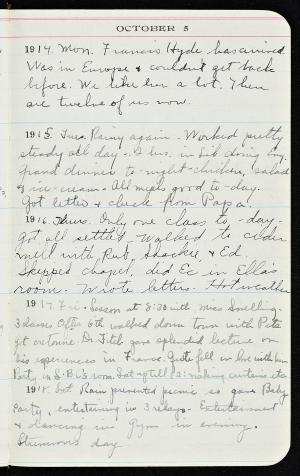 OCTOBER 5
1914. Mon. Francis Hyde has arrived.
Was in Europe & couldn't get back
before. We like her a lot. There
are twelve of us now.
1915. Tues. Rainy again. Worked pretty
steady all day. 2 hrs. in Lib doing Eng.
grand dinner to-night - chicken, salad
& ice-cream. All meals good to-day.
Got letter & check from Papa!
1916. Thurs. Only one class to-day.
Got all settled. Walked to cider
mill with Rub, & Ed
Skipped chapel, did Ec in Ella's
room. Wrote letters. Hot weather
1917. Fri. Lesson at 8:30 with Miss Snelling.
3 classes 6th walked down town with Pete
Dr. Fitch gave splendid lecture on
his experiences in France.
Party in room. Sat up till 12: making curtains etc
1918. Sat Rain prevented picnic so gave Baby
Party, entertaining in 3 relays. Entertainment
& dancing in Gym in evening.
Strenuous day